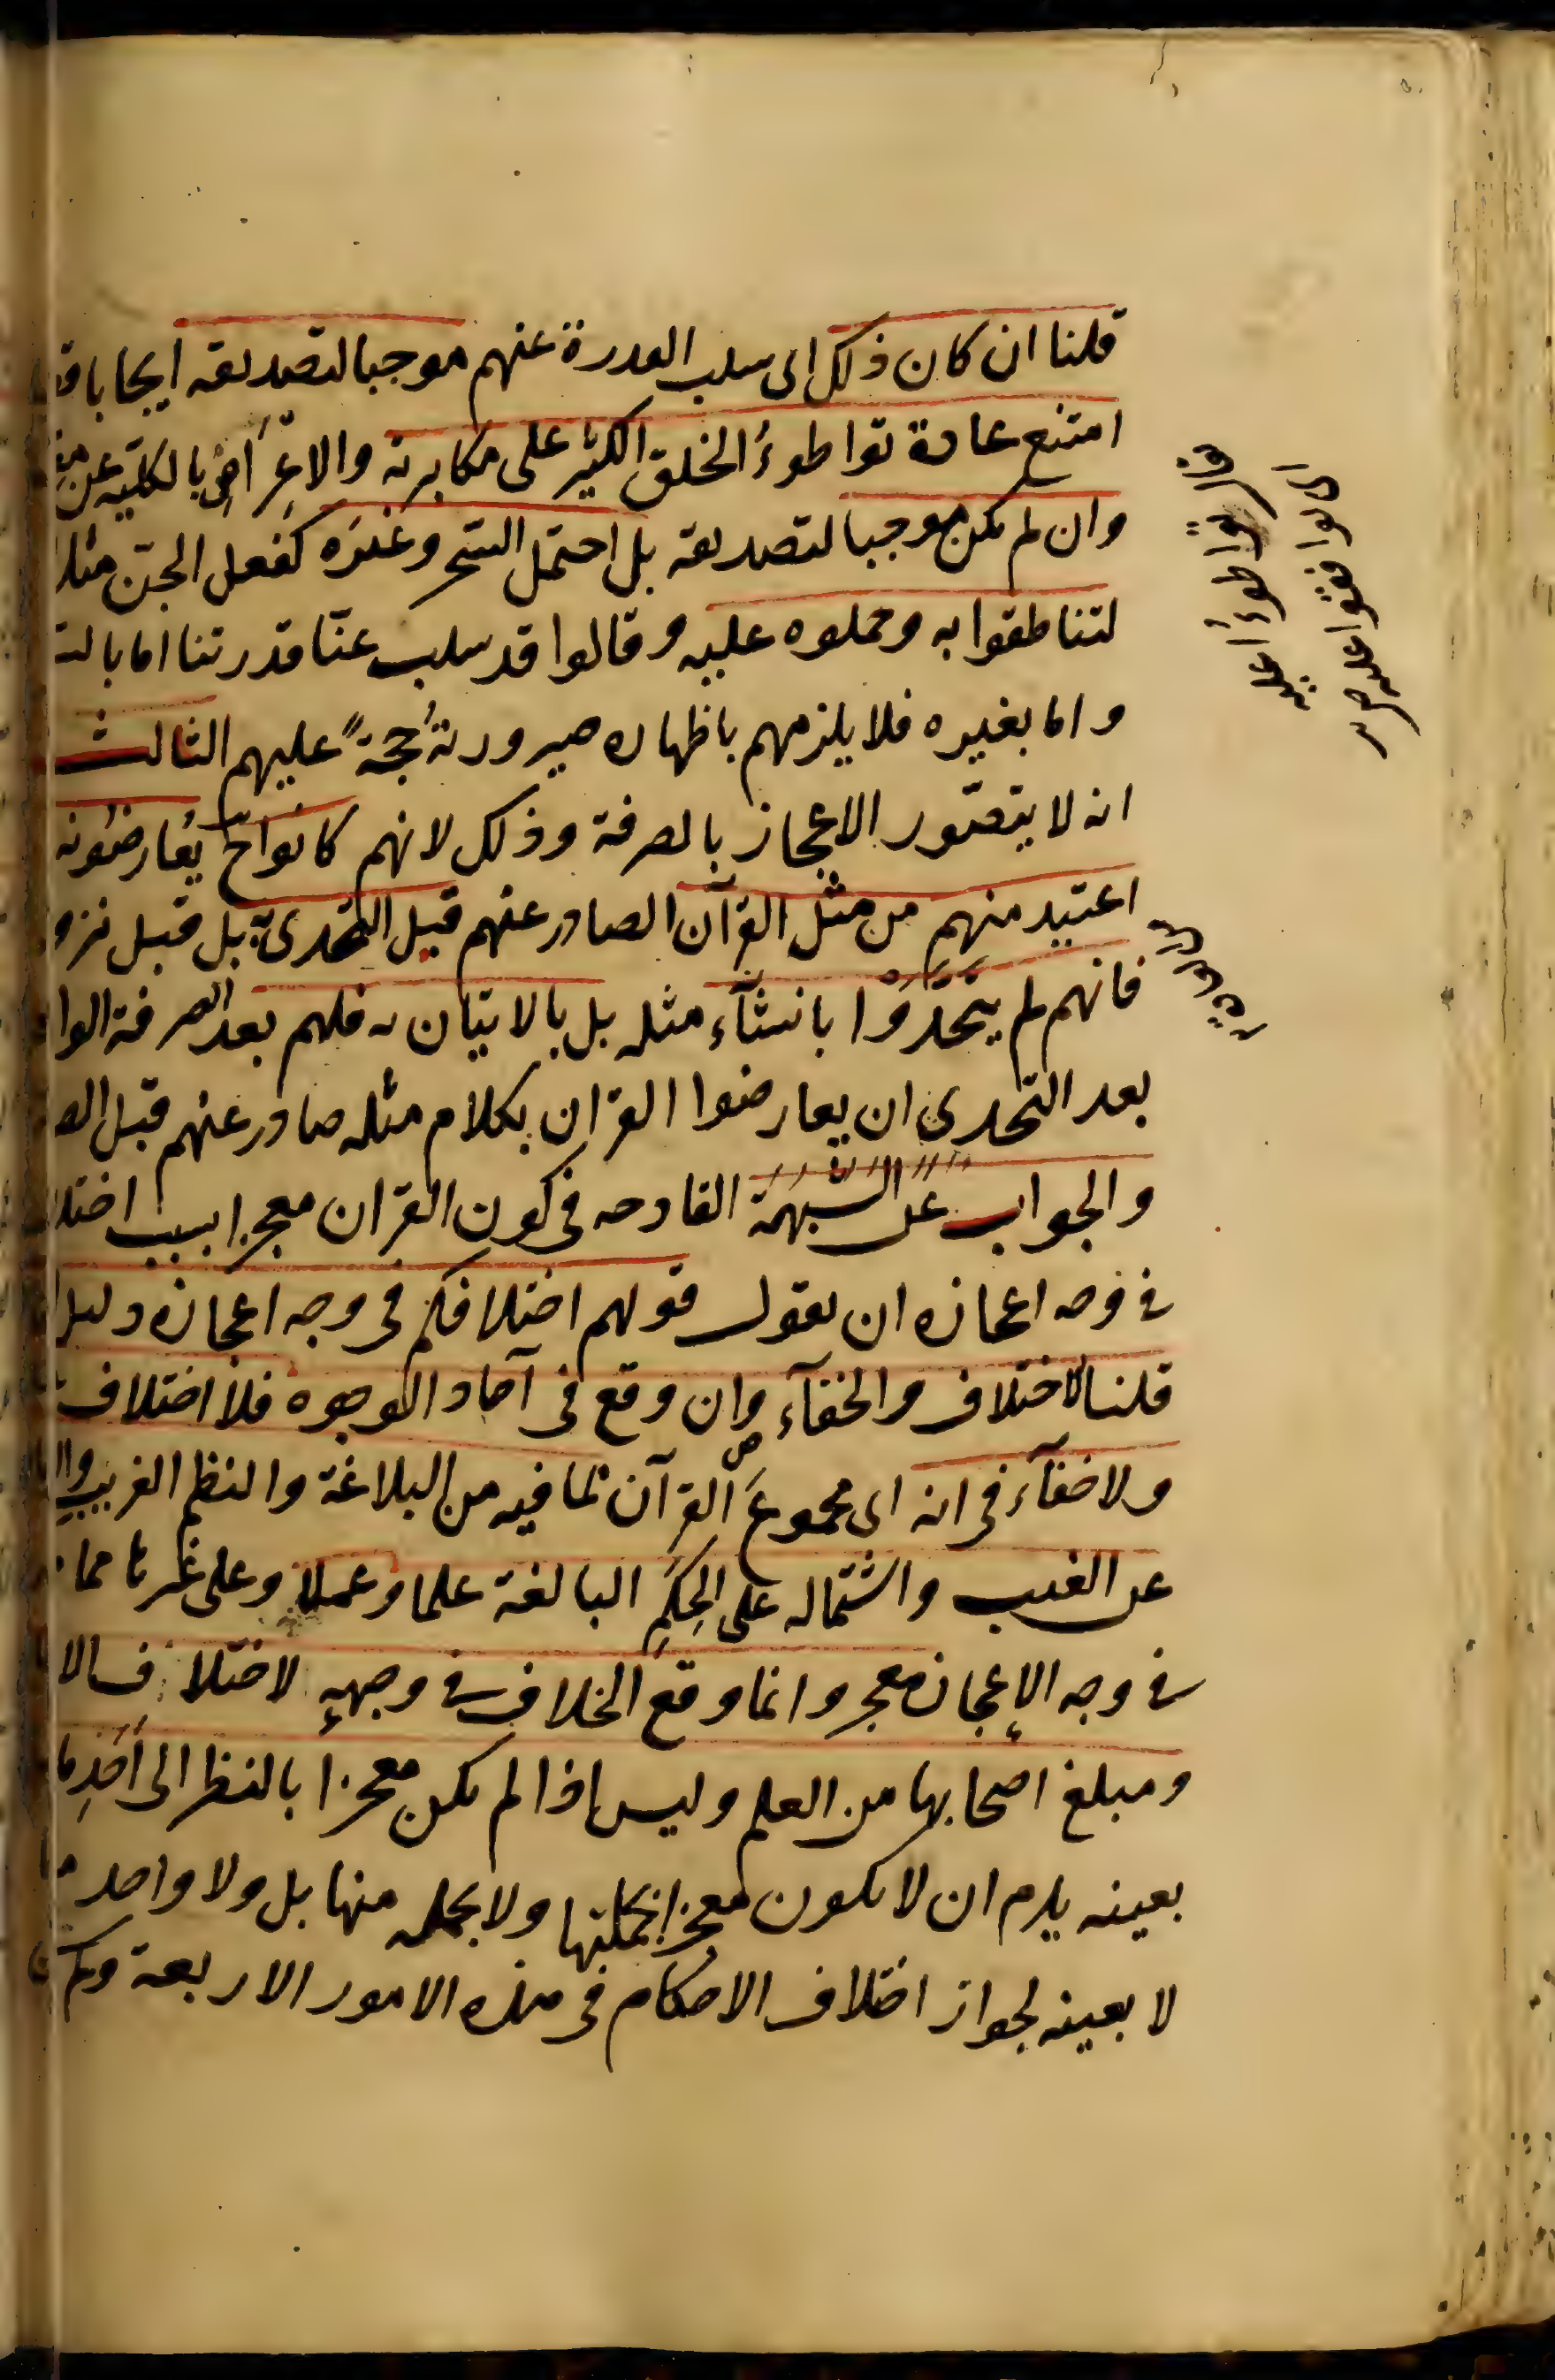 قلنا ان كان ذلك اى سلب القدرة عنهم موجبا لتصديقه ايجابا
امتنع عادة تواطوءُ الخلق الكثير على مكابرته والاعراض بالكلية عن
وان لم يكن موجبا لتصديقه بل احتمل السحر وغيره كفعل الجنّ مثلا
لتناطقوا به وحملوه عليه وقالوا قد سلب عنّا قدرتنا اما بالـ
واما بغيره فلا يلزمهم باظهاره صيرورتهُ حجةً عليهم الثالث
انه لا يتصّور الاعجاز بالصرفة وذلك لانهم كانوا ح يُعارضُونه
اعتيد منهم من مثل القرآن الصادر عنهم قبل التحدى به بل قبل نزو
فانهم لم يتحَدَّوْا بانشآء مثله بل بالاتيان به فلهم بعد الصرفة الوا
بعد التحدى ان يعارضوا القران بكلام مثله صادر عنهم قبل الصـ
والجواب عن الشبهة القادحه فى كون القران معجزا بسبب اختلا
فى وجه اعجازه ان يقول قولهم اختلافكم فى وجه اعجازه دليل
قلنا الاختلاف والخفآء وان وقع فى آحاد الوجوه فلا اختلاف
ولا خفآء فى انه اى مجموعَ القرآن بما فيه من البلاغة والنظم الغريب
عن الغيب واشتماله على الحِكَمِ البالغة علما وعملا وعلى غيرها مما
فى وجه الإعجاز معجز وانما وقع الخلاف فى وجههِ لاختلاف الا
ومبلغ اصحابها من العلم وليس اذا لم يكن معجزا بالنظر الى أحَدِها
بعينه يلزم ان لا يكون معجزا بجملتها ولا بجملة منها بل ولا واحد
لا بعينه لجواز اختلاف الاحكام فى هذه الامور الاربعة وكم